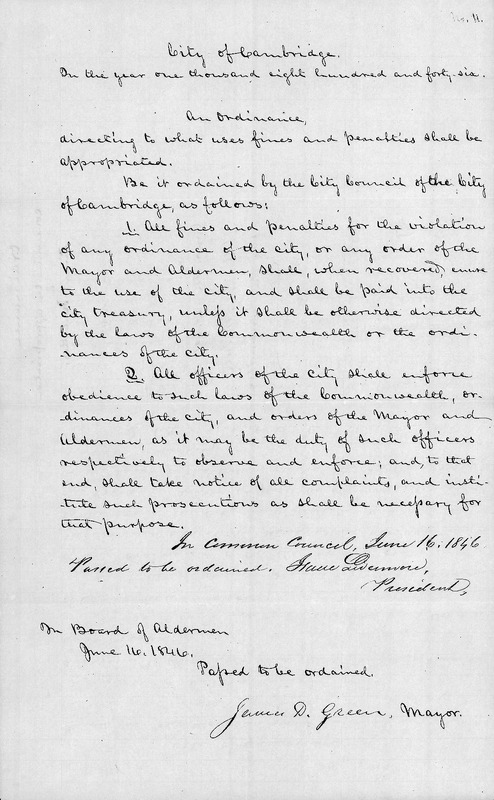 No. 11.
City of Cambridge.
In the year one thousand eight hundred and forty-six.
An Ordinance,
directing to what uses fines and penalties shall be
appropriated.
Be it ordained by the City Council of the City
of Cambridge, as follows:
1. All fines and penalties for the violation
of any ordinance of the city, or any order of the
Mayor and Aldermen, shall, when recovered, enure
to the use of the city, and shall be paid into the
city treasury, unless it shall be otherwise directed
by the laws of the Commonwealth or the ordi-
nances of the city.
2. All officers of the city shall enforce
obedience to such laws of the Commonwealth, or-
dinances of the city, and orders of the Mayor and
Aldermen, as it may be the duty of such officers
respectively to observe and enforce; and, to that
end, shall take notice of all complaints, and insti-
tute such prosecutions as shall be necessary for
that purpose.
In Common Council, June 16, 1846
Passed to be ordained. Isaac Livermore,
President,
In Board of Aldermen
June 16. 1846.
Passed to be ordained.
James D. Green, Mayor.